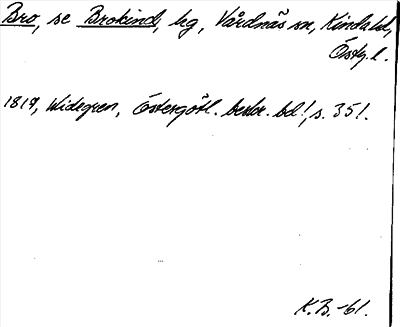 Bro, se Brokind, hg, Vårdnäs sn, Kinda hd,
Östg. l.
1817, Widegren, Östergötl. beskr. bd 1, s. 351.
K.B. -61.